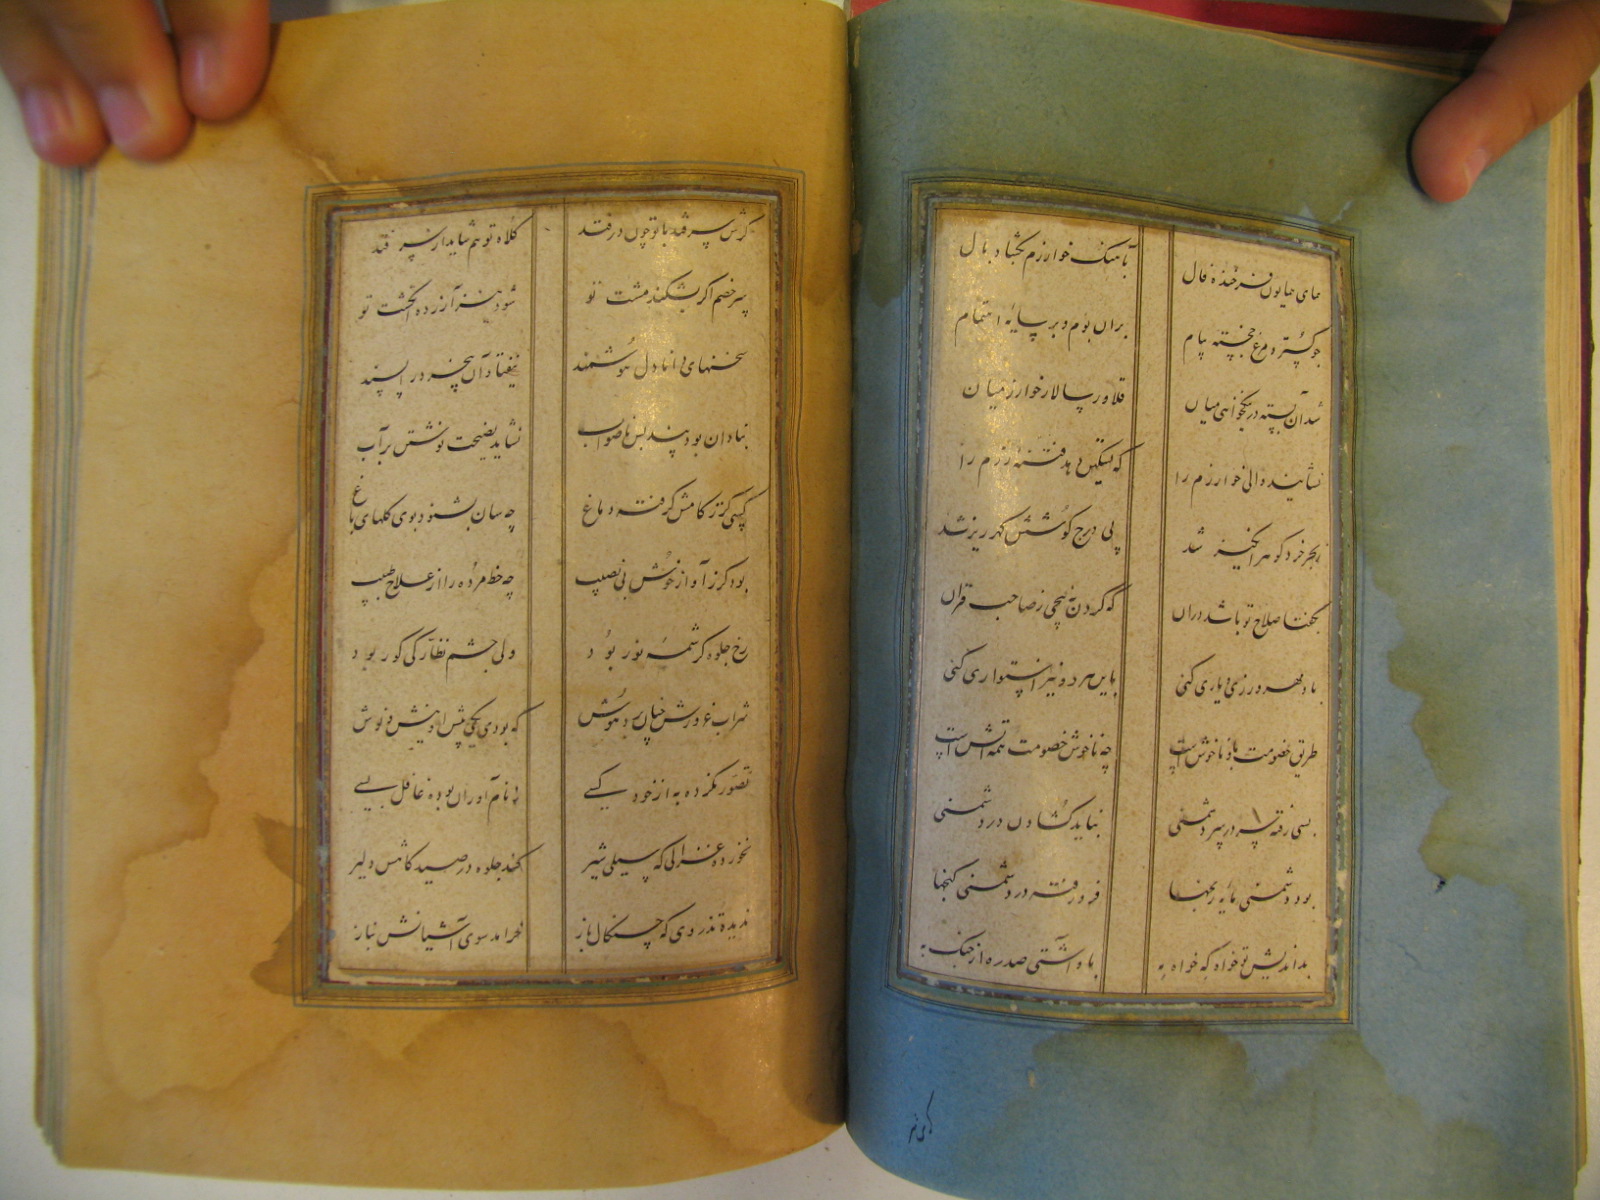 همای همایون فرخنده فال
بآهنگ خوارزم بگشاد بال
چو گسترد مرغ خجسته پیام
بران بوم و بر سایه اهتمام
شد آن بسته در نیکخواهی میان
قلاوز سالار خوارزمیان
نشاینده والی خوارزم را
که تسکین دهد فتنه رزم را
ببحر خرد گوهرانگیز شد
پی درج گوشش گهرریز شد
بگفتا صلاح تو باشد دران
که گردن نه پیچی ز صاحب قران
باو مهرورزی و یاری کنی
باین هر دو نیز استواری کنی
طریق خصومت باو ناخوش است
چه ناخوش خصومت همه آتش است
بسی رفته سر در سر دشمنی
نباید گشادن در دشمنی
بود دشمنی مایه رنجها
فرو رفته در دشمنی گنجها
بداندیش تو خواه که خواه به
باو آشتی صدره از جنگ به
گرش سر فتد با تو چون در فتد
کلاه تو هم شاید از سر فتد
سر خصم اگر بشکند مشت تو
شود نیز آزرده انگشت تو
سخنهای دانا دل هوشمند
نیفتاد آن بیخبر را پسند
بنادان بود پند بس ناصواب
نشاید نصیحت نوشتن بر آب
کسی کز زکامش گرفته دماغ
چه سان بشنود بوی گلهای باغ
بود کر ز آواز خوش بی نصیب
چه حظ مرده را از علاج طبیب
رخ جلوه گر شمه نور بود
ولی چشم نظارگی کور بود
شراب غرورش چنان برد هوش
که بودی یکی پیشش او نیش و نوش
تصور نکرده به از خود کسی
ز نام آوران بوده غافل بسی
نخورده غزالی که سیلی شیر
کند جلوه در صیدگاهش دلیر
ندیده تذروی که چنگال باز
خرامد سوی آشیانش بناز